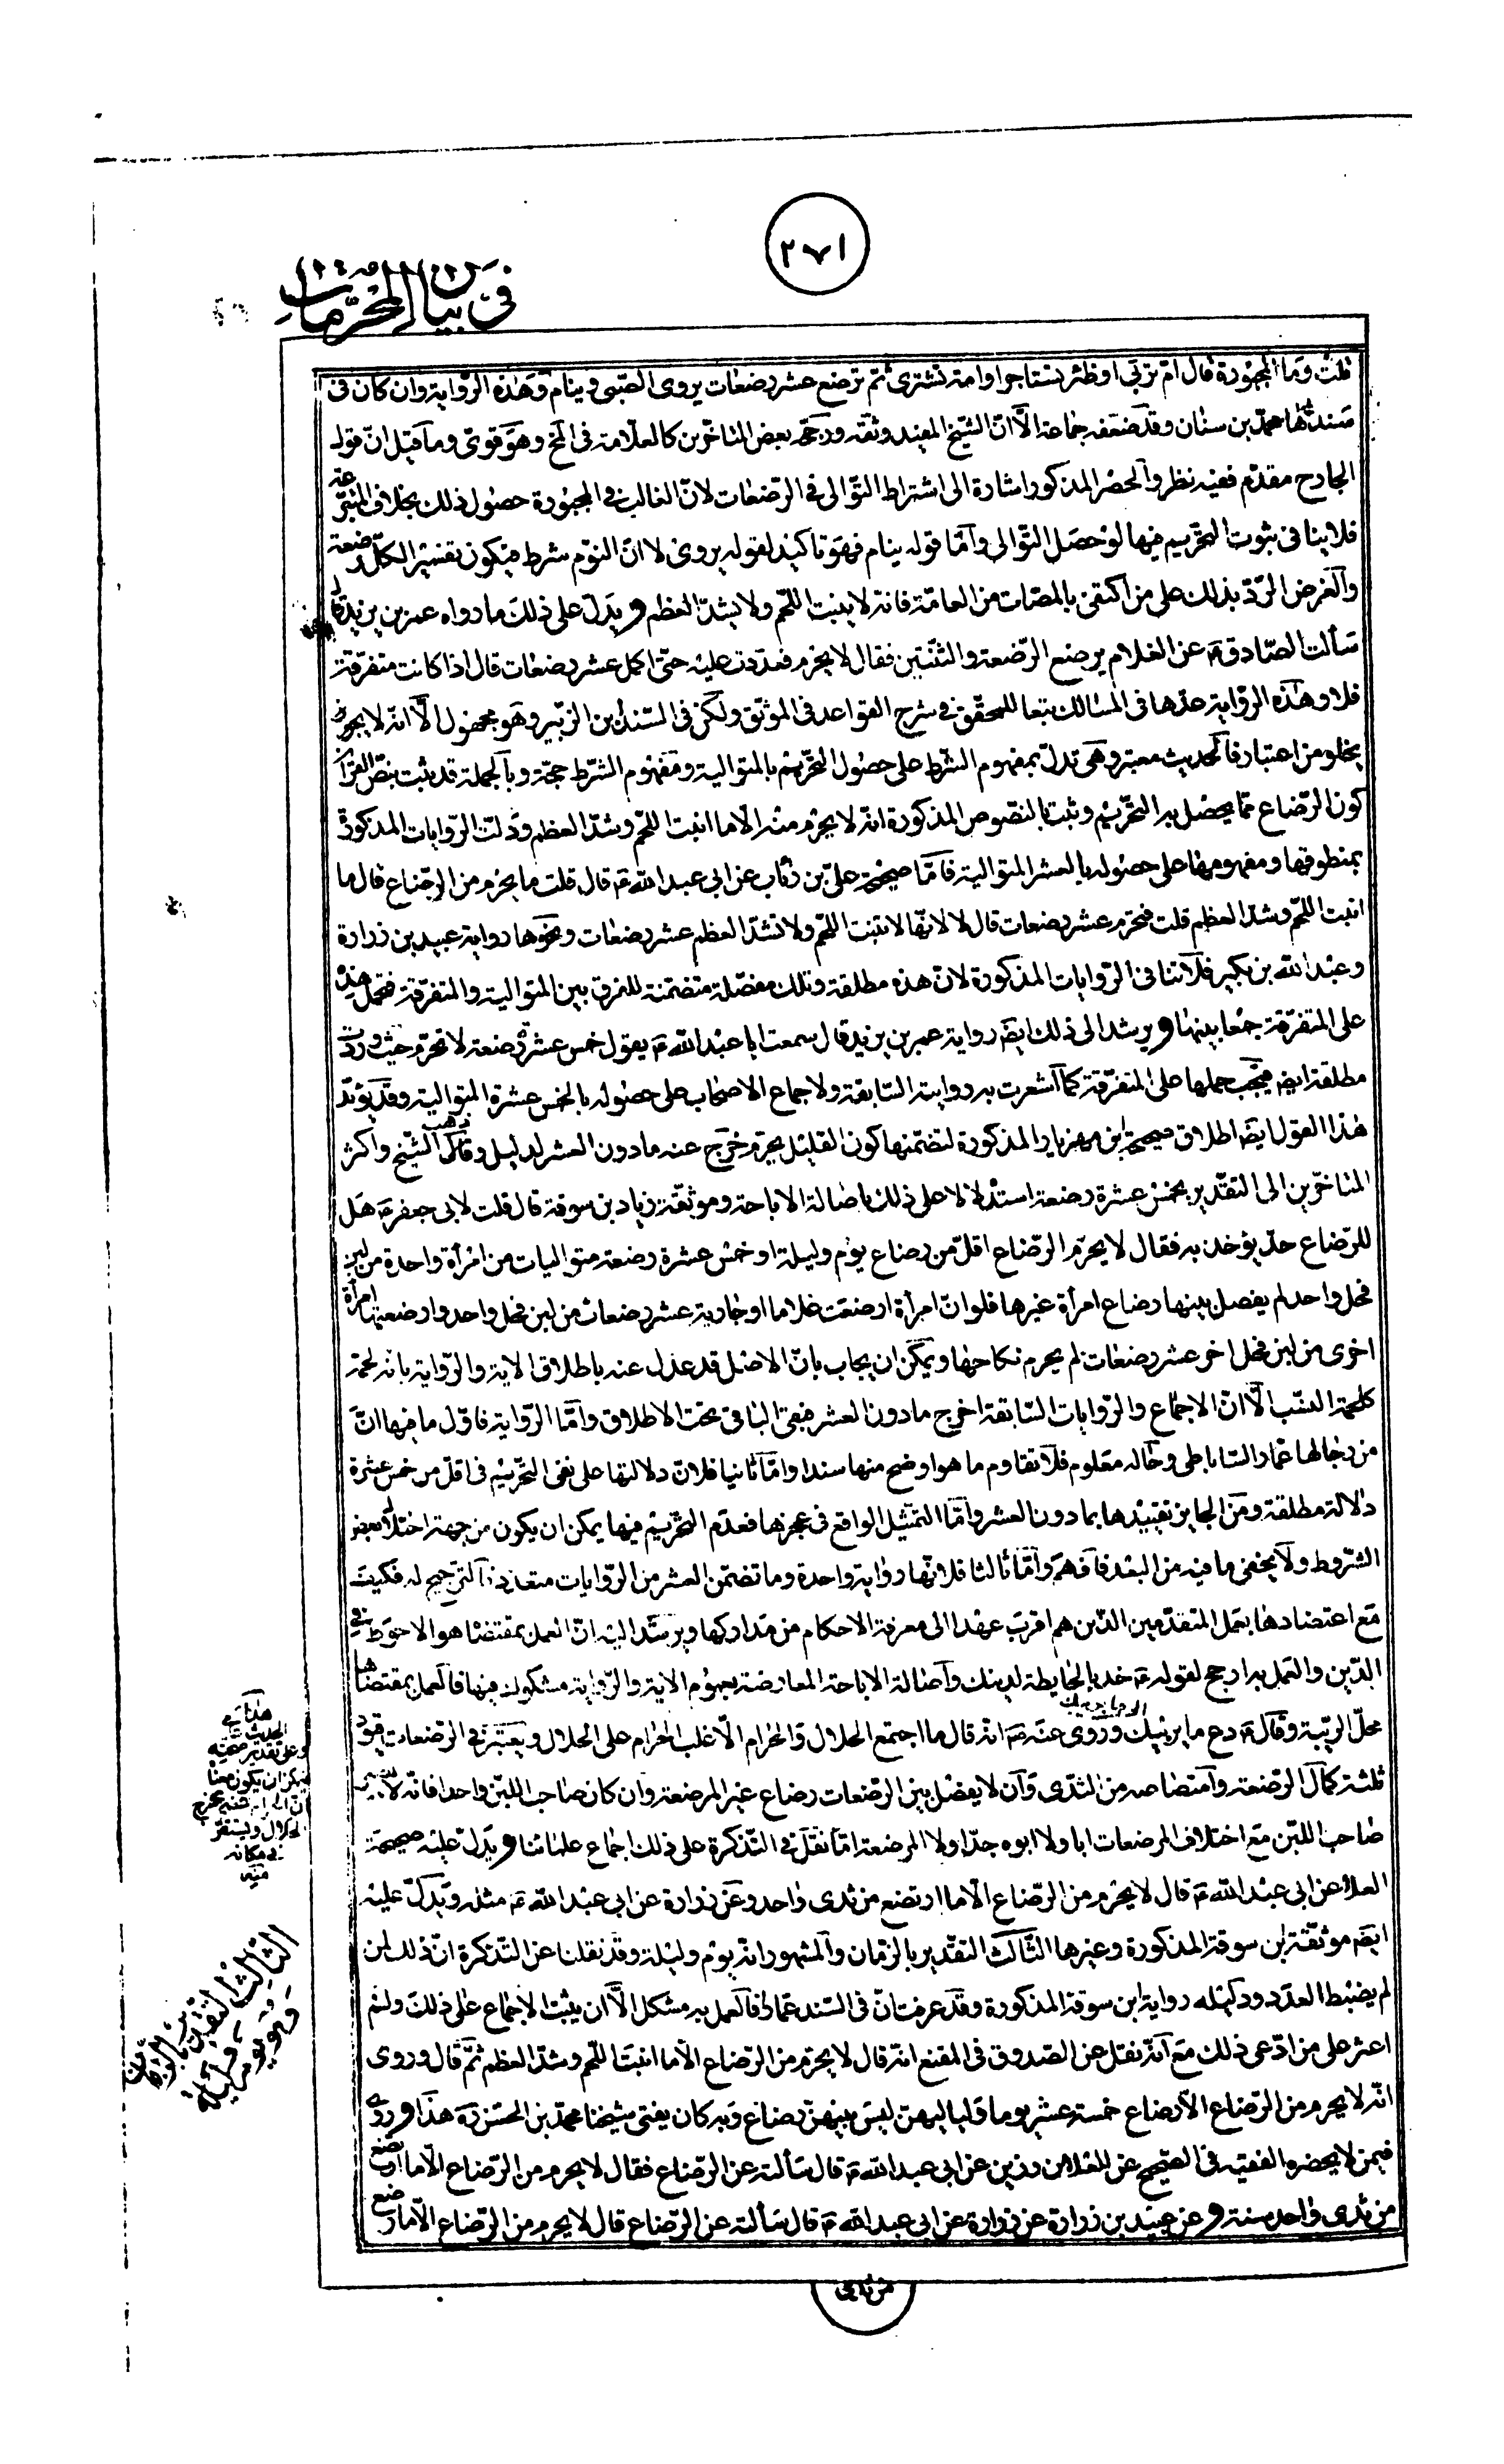 ٢٧١
في بيان المحرمات
قلت وما المجبورة قال ام تربي او ظئر تستاجر او امة تشترى ثم ترضع عشر رضعات يروى الصبي وينام وهذه الرواية وان كان في
سندها محمد بن سنان وقد ضعفه جماعة الا ان الشيخ المفيد وثقه ورجحه بعض المتاخرين كالعلامة في المخ وهو قوى وما قيل ان قول
الجارح مقدم ففيه نظر والحصر المذكور اشارة الى اشتراط التوالى في الرضعات لان الغالب في المجبورة حصول ذلك بخلاف المتبرعة
فلا ينافى ثبوت التحريم فيها لو حصل التوالى واما قوله ينام فهو تاكيد لقوله يروى لا ان النوم شرط فيكون تفسير الكل رضعة
والغرض الرد بذلك على من اكتفى بالمصات من العامة فانه لا ينبت اللحم ولا يشد العظم ويدل على ذلك ما رواه عمر بن يزيد قال
سألت الصادق ع عن الغلام يرضع الرضعة والثنتين فقال لا يحرم فعددت عليه حتى اكمل عشر رضعات قال اذا كانت متفرقة
فلا وهذه الرواية عدها في المسالك تبعا للمحقق في شرح القواعد في الموثق ولكن في السند ابن الزبير وهو مجهول الا انه لا
يخلو من اعتبار فالحديث معتبر وهى تدل بمفهوم الشرط على حصول التحريم بالمتوالية ومفهوم الشرط حجة وبالجملة قد ثبت بنص القران
كون الرضاع مما يحصل به التحريم وثبت بالنصوص المذكورة انه لا يحرم منه الا ما انبت اللحم وشد العظم ودلت الروايات المذكورة
بمنطوقها ومفهومها على حصوله بالعشر المتوالية فاما صحيحة على بن رئاب عن ابي عبد الله ع قال قلت ما يحرم من الرضاع قال ما
انبت اللحم وشد العظم قلت فيحرم عشر رضعات قال لا لانها لا تنبت اللحم ولا تشد العظم عشر رضعات ونحوها رواية عبيد بن زرارة
وعبد الله بن بكير فلا تنافى الروايات المذكورة لان هذه مطلقة وتلك مفصلة متضمنة للفرق بين المتوالية والمتفرقة فتحمل هذه
على المتفرقة جمعا بينها ويرشد الى ذلك ايضا رواية عمر بن يزيد قال سمعت ابا عبد الله ع يقول خمس عشرة رضعة لا تحرم حيث وردت
مطلقة ايضا فيجب حملها على المتفرقة كما اشعرت به روايته السابقة ولاجماع الاصحاب على حصوله بالخمس عشرة المتوالية وقد يؤيد
هذا القول ايضا اطلاق صحيحة ابن مهزيار المذكورة لتضمنها كون القليل يحرم خرج عنه ما دون العشر لدليل وذهب الشيخ واكثر
المتاخرين الى التقدير بخمس عشرة رضعة استدلالا على ذلك باصالة الاباحة وموثقة زياد بن سوقة قال قلت لابى جعفر ع هل
للرضاع حد يؤخذ به فقال لا يحرم الرضاع اقل من رضاع يوم وليلة او خمس عشرة رضعة متواليات من امرأة واحدة من لبن
فحل واحد لم يفصل بينها رضاع امرأة غيرها فلو ان امرأة ارضعت غلاما او جارية عشر رضعات من لبن فحل واحد وارضعتهما امرأة
اخرى من لبن فحل اخر عشر رضعات لم يحرم نكاحها ويمكن ان يجاب بان الاصل قد عدل عنه باطلاق الاية والرواية بانه لحمة
كلحمة النسب الا ان الاجماع والروايات السابقة اخرج ما دون العشر فبقى الباقى تحت الاطلاق واما الرواية فاول ما فيها ان
من رجالها عمار الساباطى وحاله معلوم فلا تقاوم ما هو اوضح منها سندا واما ثانيا فلان دلالتها على نفى التحريم في اقل من خمس عشرة
دلالة مطلقة ومن الجايز تقييدها بما دون العشر واما التمثيل الواقع في عجزها فعدم التحريم فيها يمكن ان يكون من جهة اختلال بعض
الشروط ولا يخفى ما فيه من البعد فافهم واما ثالثا فلانها رواية واحدة وما تضمن العشر من الروايات متعددة فالترجيح له فكيف
مع اعتضادها بعمل المتقدمين الذين هم اقرب عهدا الى معرفة الاحكام من مداركها ويرشد اليه ان العمل بمقتضاها هو الاحوط في
الدين والعمل به ارجح لقوله ع خذ بالحايطة لدينك واصالة الاباحة المعارضة بعموم الاية والرواية مشكوك فيها فالعمل بمقتضاها
محل الريبة وقال ع دع ما يريبك الى ما لا يريبك وروى عنه ع انه قال ما اجتمع الحلال والحرام الا غلب الحرام على الحلال ويعتبر في الرضعات قيود
ثلثة كمال الرضعة وامتصاصه من الثدى وان لا يفصل بين الرضعات رضاع غير المرضعة وان كان صاحب اللبن واحدا فانه لا يصير
صاحب اللبن مع اختلاف المرضعات ابا ولا ابوه جدا ولا المرضعة اما نقل في التذكرة على ذلك اجماع علمائنا ويدل عليه صحيحة
العلا عن ابى عبد الله ع قال لا يحرم من الرضاع الا ما ارتضع من ثدى واحد وعن زرارة عن ابى عبد الله ع مثله ويدل عليه
ايضا موثقة ابن سوقة المذكورة وغيرها الثالث التقدير بالزمان والمشهور انه يوم وليلة وقد نقلنا عن التذكرة ان ذلك لمن
لم يضبط العدد ودليله رواية ابن سوقة المذكورة وقد عرفت ان في السند عمارا فالعمل به مشكل الا ان يثبت الاجماع على ذلك ولم
اعثر على من ادعى ذلك مع انه نقل عن الصدوق في المقنع انه قال لا يحرم من الرضاع الا ما انبت اللحم وشد العظم ثم قال وروى
انه لا يحرم من الرضاع الا رضاع خمسة عشر يوما ولياليهن ليس بينهن رضاع وبه كان يفتى شيخنا محمد بن الحسن ره هذا وروى
فيمن لا يحضره الفقيه في الصحيح عن العلا بن رزين عن ابى عبد الله ع قال سألته عن الرضاع فقال لا يحرم من الرضاع الا ما ارتضع
من ثدى واحد سنة وعن عبيد بن زرارة عن زرارة عن ابى عبد الله ع قال سألته عن الرضاع قال لا يحرم من الرضاع الا ما ارتضع
من ثدى
الحديث
وعلى تقدير صحته
يمكن ان يكون معناه
ان الحرام
الحلال ويستقر
في مكانه
منه
الثالث التقدير بالزمان
وهو يوم وليلة